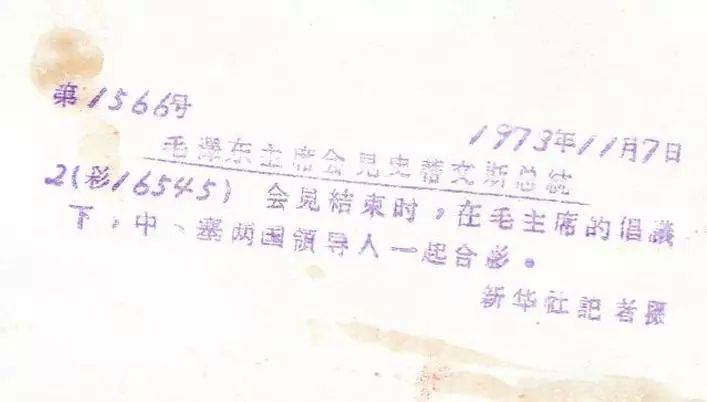 第1566号
1973年11月7日
毛澤东主席会見史蒂文斯总統
2(彩16545) 会見結束时，在毛主席的倡議
下，中、塞两国領导人一起合影。
新华社記者摄